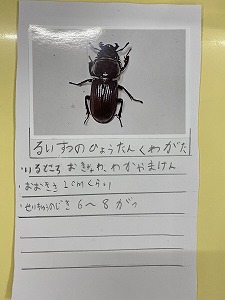 るいすつのひょうたんくわがた
・いるところ おきなわ、わかやまけん
・おおきさ 2cmくらい
・せいちゅうのじき 6〜8がつ